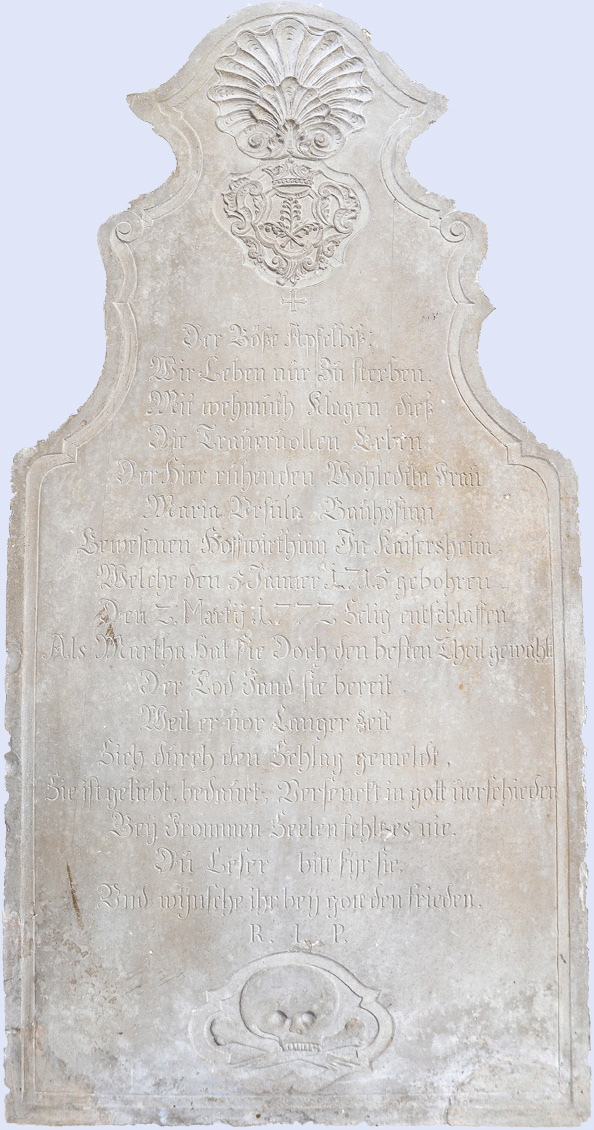 Der Böße Apfelbiß:
Wir Leben nur Zu sterben.
Mit wehmuth Klagen dieß
Die Trauervollen Erben.
Der Hier ruhenden Wohledln Frau
Maria Vrsula Bauhöfinn
Gewesenen Hoffwirthinn In Kaisersheim.
Welche den 5 Janner 1715 gebohren
Den 7 Martij 1772 Selig entschlaffen
Als Martha Hat sie Doch den besten Theil gewählt
Der Tod Fand sie bereit.
Weil er vor Langer Zeit
Sich durch den Schlag gemeldt.
Sie ist geliebt, bedaurt, Versenckt in gott verschieden
Beÿ Frommen Seelen fehlt es nie.
Du Leser bitt fyr sie.
Vnd wÿnsche ihr beÿ gott den frieden.
R. I. P.